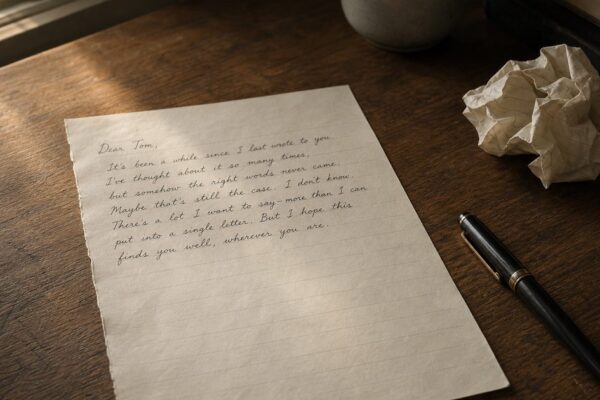 Dear Tom,
It's been a while since I last wrote to you.
I've thought about it so many times,
but somehow the right words never came.
Maybe that's still the case. I don't know.
There's a lot I want to say more than I can
put into a single letter. But I hope this
finds you well, wherever you are.